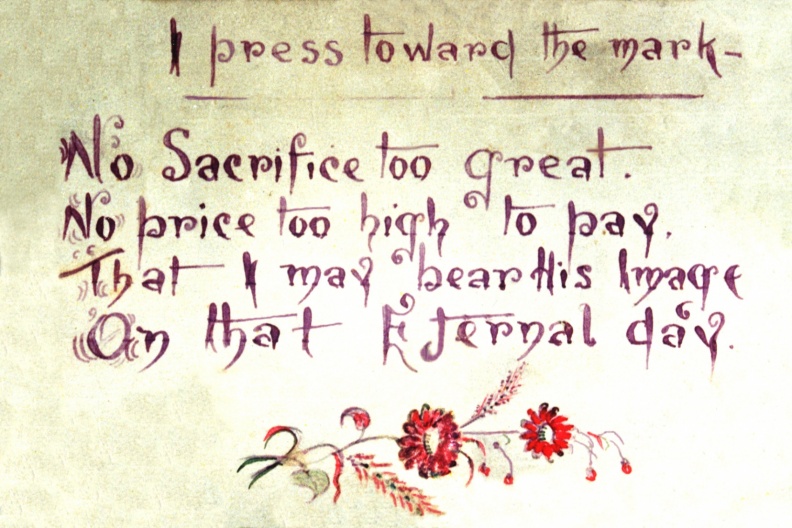 I press toward the mark-
No Sacrifice too great.
No price too high to pay.
That I may bear His Image
On that Eternal day.